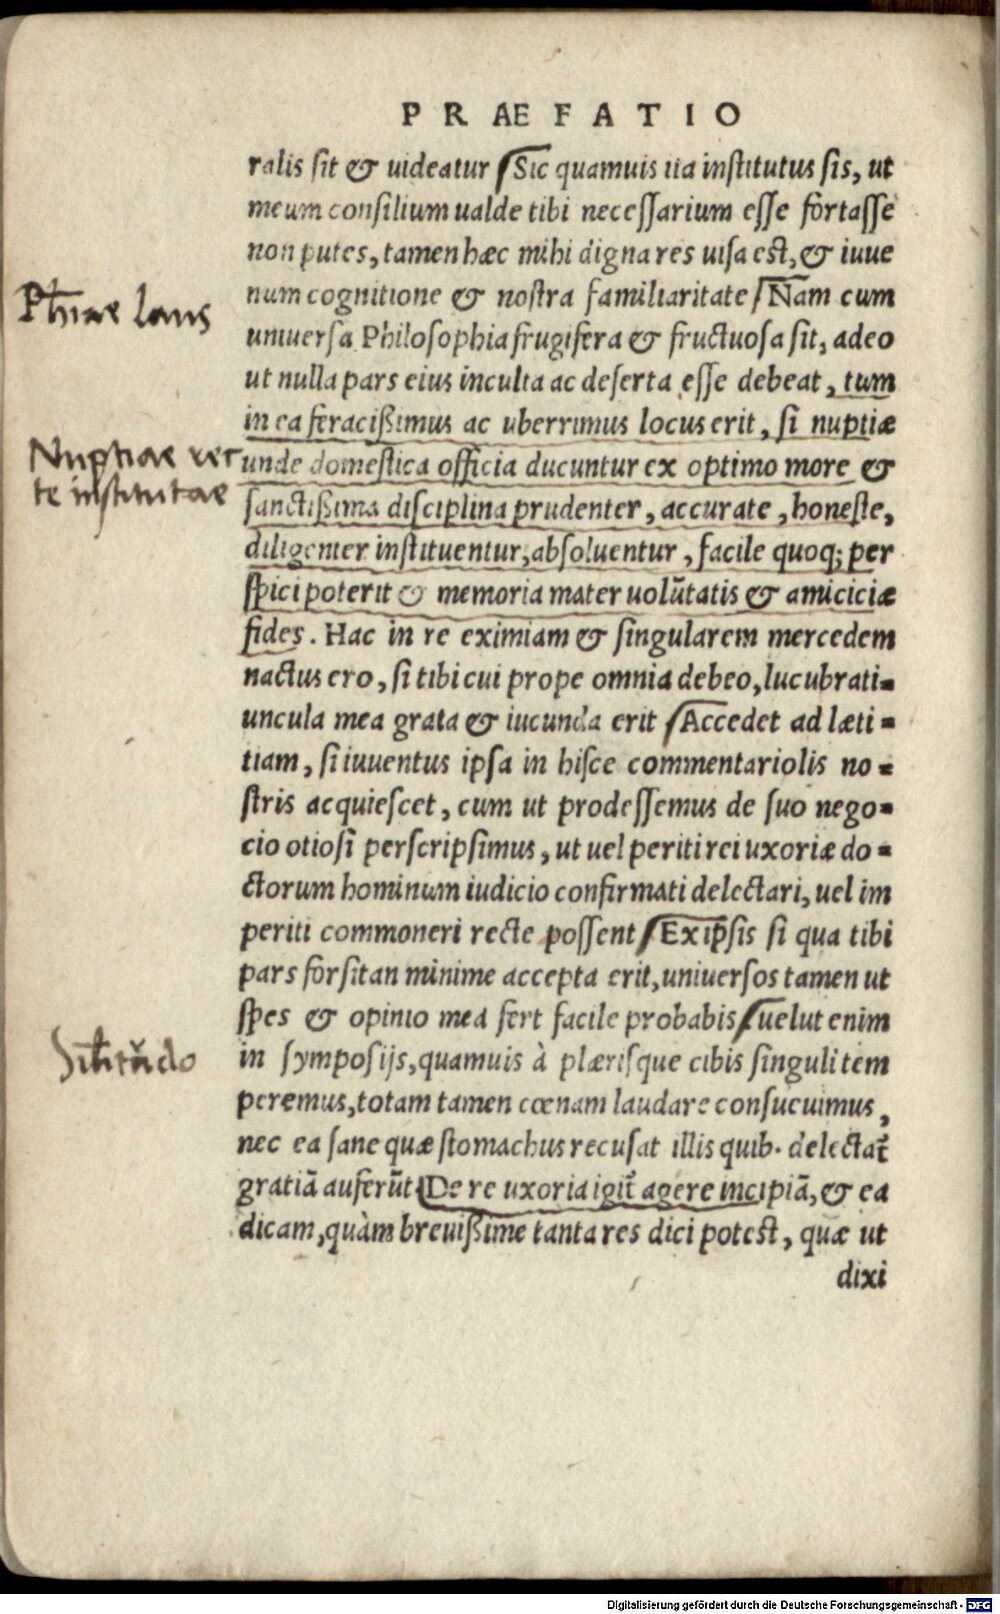 PRÆFATIO
ralis sit & uideatur Sic quamuis ita institutus sis, ut
meum consilium ualde tibi necessarium esse fortasse
non putes, tamen hæc mihi digna res uisa est, & iuue
num cognitione & nostra familiaritate Nam cum
Phiae laus
uniuersa Philosophia frugifera & fructuosa sit, adeo
ut nulla pars eius inculta ac deserta esse debeat, tum
in ea feracißimus ac uberrimus locus erit, si nuptiæ
Nuptiae rec
unde domestica officia ducuntur ex optimo more &
te institutae
sanctißima disciplina prudenter, accurate, honeste,
diligenter instituentur, absoluentur, facile quoq; per
spici poterit & memoria mater uolũtatis & amiciciæ
fides. Hac in re eximiam & singularem mercedem
nactus ero, si tibi cui prope omnia debeo, lucubrati-
uncula mea grata & iucunda erit Accedet ad læti-
tiam, si iuuentus ipsa in hisce commentariolis no-
stris acquiescet, cum ut prodessemus de suo nego-
cio otiosi perscripsimus, ut uel periti rei uxoriæ do-
ctorum hominum iudicio confirmati delectari, uel im
periti commoneri recte possent Ex ipsis si qua tibi
pars forsitan minime accepta erit, uniuersos tamen ut
spes & opinio mea fert facile probabis uelut enim
Silitũdo
in symposijs, quamuis à plærisque cibis singuli tem
peremus, totam tamen cœnam laudare consueuimus,
nec ea sane quæ stomachus recusat illis quib. delectat̃
gratiã auferũt De re uxoria igit̃ agere incipiã, & ea
dicam, quàm breuißime tanta res dici potest, quæ ut
dixi
Digitalisierung gefördert durch die Deutsche Forschungsgemeinschaft - DFG